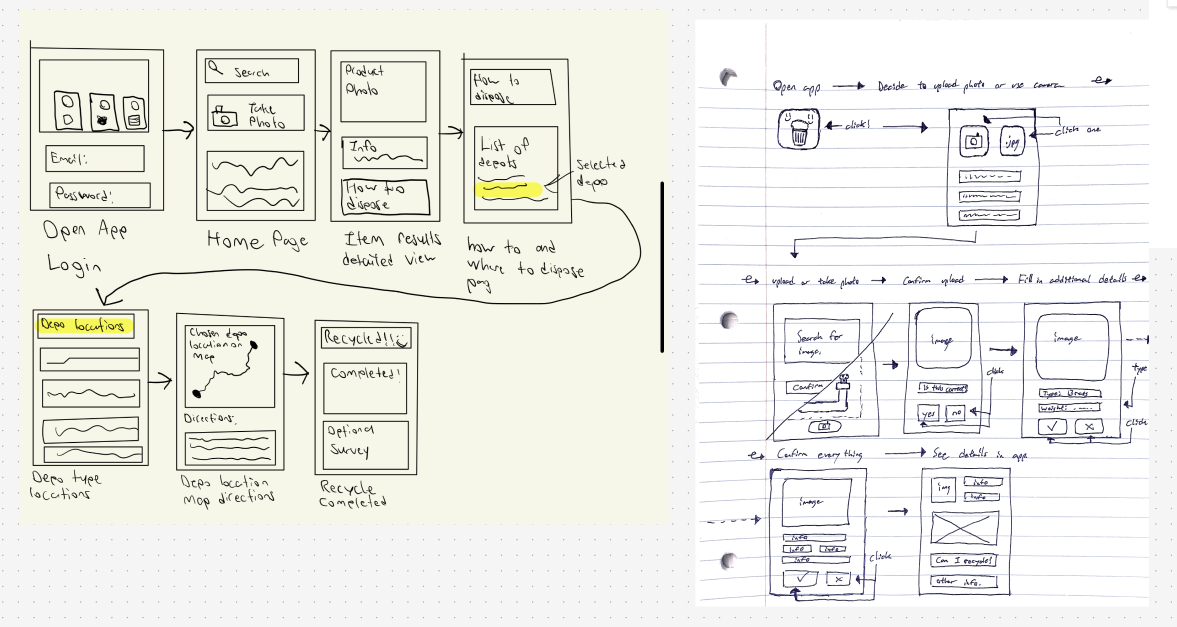 Email:
Password:
Open App
Login
Search
Take
Photo
Home Page
Product
Photo
Info
How to
dispose
Item results
detailed view
How to
dispose
List of
depots
Selected
depo
how to and
where to dispose
pag
Depo locations
Depo type
locations
Chosen depo
location on
Map
Directions:
Depo location
Map directions
Recycled!!!
Completed!
Optional
Survey
Recycle
Completed
Open app
Decide to upload photo or use camera
click!
.jpg
Click one
upload or take photo
Confirm upload
Fill in additional details
Search for
image.
Confirm
image
Is this correct
yes
no
click
image
Type: Brass
Weight:
type
click
Confirm everything
See details in app
image
info
info
info
info
click
img
info
info
Can I recycle?
other info.